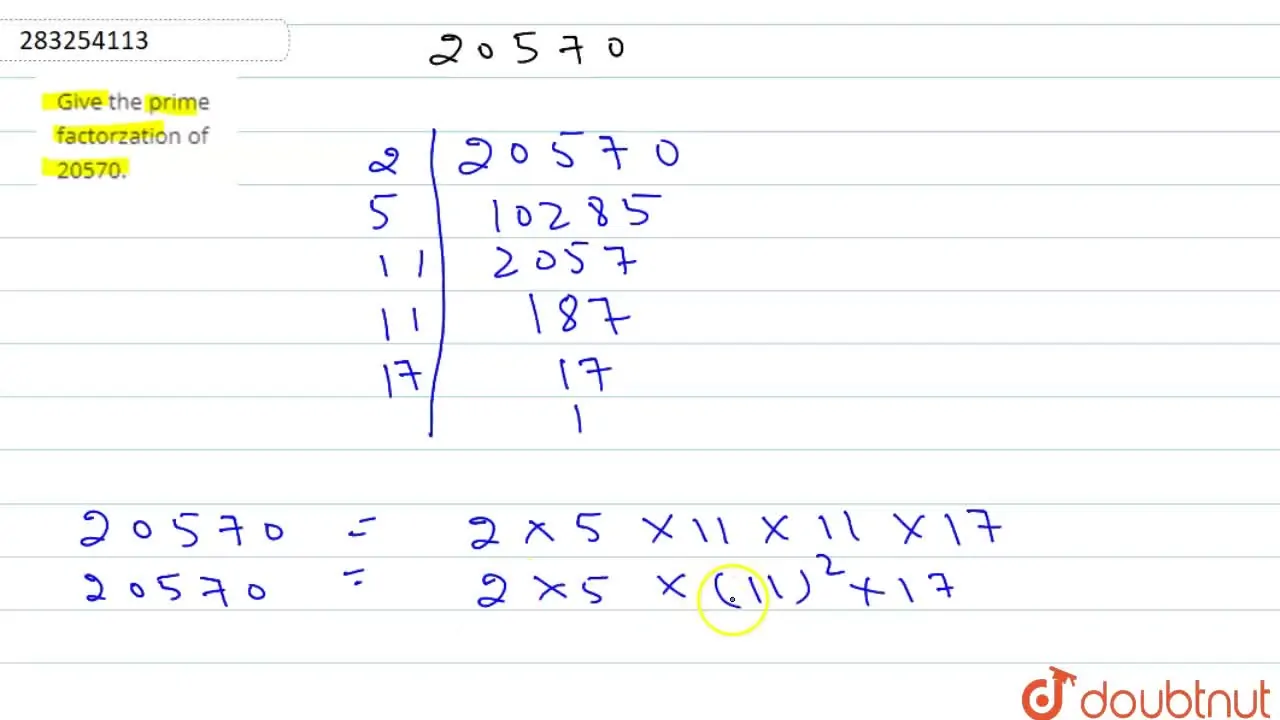 283254113
20570
Give the prime
factorzation of
20570.
2 | 20570
5 | 10285
11 | 2057
11 | 187
17 | 17
1
20570 = 2 × 5 × 11 × 11 × 17
20570 = 2 × 5 × (11)² × 17
doubtnut